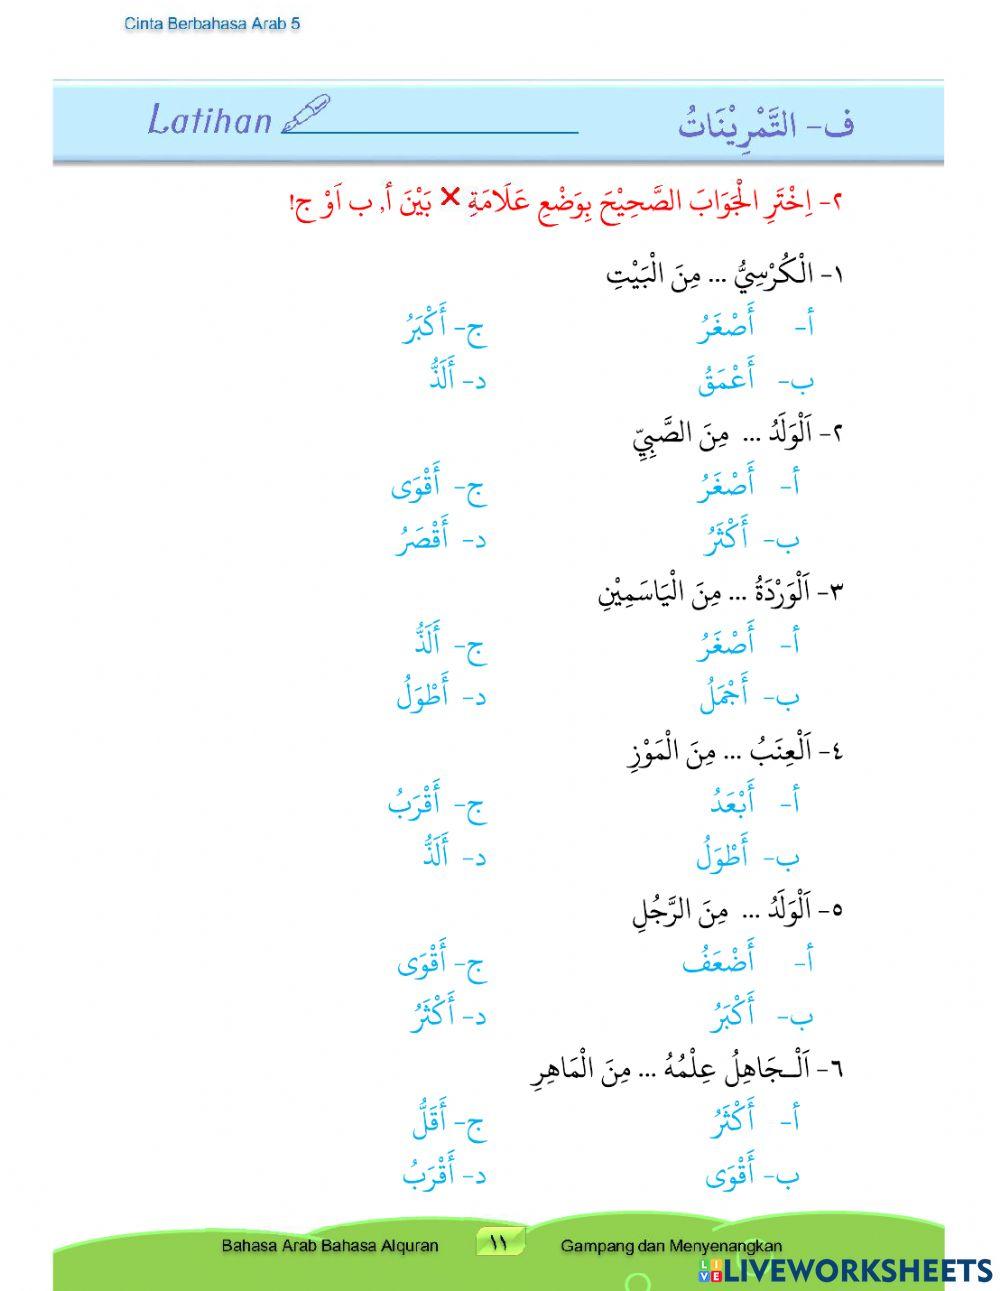 Cinta Berbahasa Arab 5
ف- التَّمْرِيْنَاتُ Latihan
٢- اِخْتَرِ الْجَوَابَ الصَّحِيْحَ بِوَضْعِ عَلَامَةِ ✕ بَيْنَ أ, ب اَوْ ج!
١- الْكُرْسِيُّ ... مِنَ الْبَيْتِ
أ- أَصْغَرُ ج- أَكْبَرُ
ب- أَعْمَقُ د- أَلَذُّ
٢- اَلْوَلَدُ ... مِنَ الصَّبِيِّ
أ- أَصْغَرُ ج- أَقْوَى
ب- أَكْثَرُ د- أَقْصَرُ
٣- اَلْوَرْدَةُ ... مِنَ الْيَاسَمِيْنِ
أ- أَصْغَرُ ج- أَلَذُّ
ب- أَجْمَلُ د- أَطْوَلُ
٤- اَلْعِنَبُ ... مِنَ الْمَوْزِ
أ- أَبْعَدُ ج- أَقْرَبُ
ب- أَطْوَلُ د- أَلَذُّ
٥- اَلْوَلَدُ ... مِنَ الرَّجُلِ
أ- أَضْعَفُ ج- أَقْوَى
ب- أَكْبَرُ د- أَكْثَرُ
٦- اَلْـجَاهِلُ عِلْمُهُ ... مِنَ الْمَاهِرِ
أ- أَكْثَرُ ج- أَقَلُّ
ب- أَقْوَى د- أَقْرَبُ
Bahasa Arab Bahasa Alquran ١١ Gampang dan Menyenangkan
LIVE LIVEWORKSHEETS